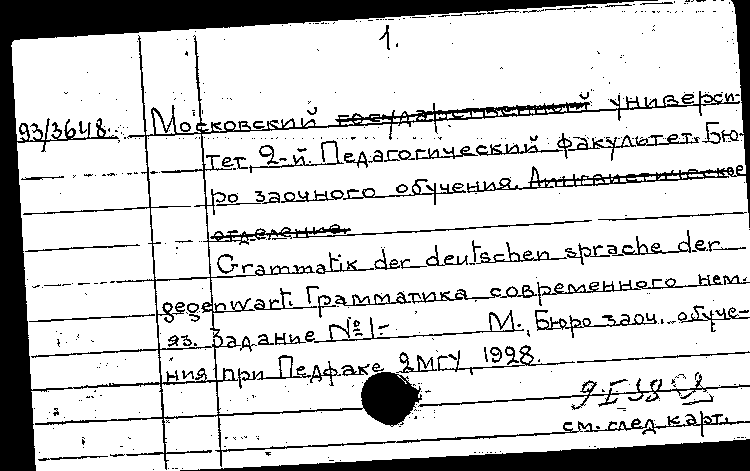 1.
93/3648. Московский государственный универси-
тет, 2-й. Педагогический факультет. Бю-
ро заочного обучения. Лингвистическое
отделение.
Grammatik der deutschen sprache der
gegenwart. Грамматика современного нем.
яз. Задание №1- М., Бюро заоч. обуче-
ния при Педфаке 2МГУ, 1928.
см. след. карт.